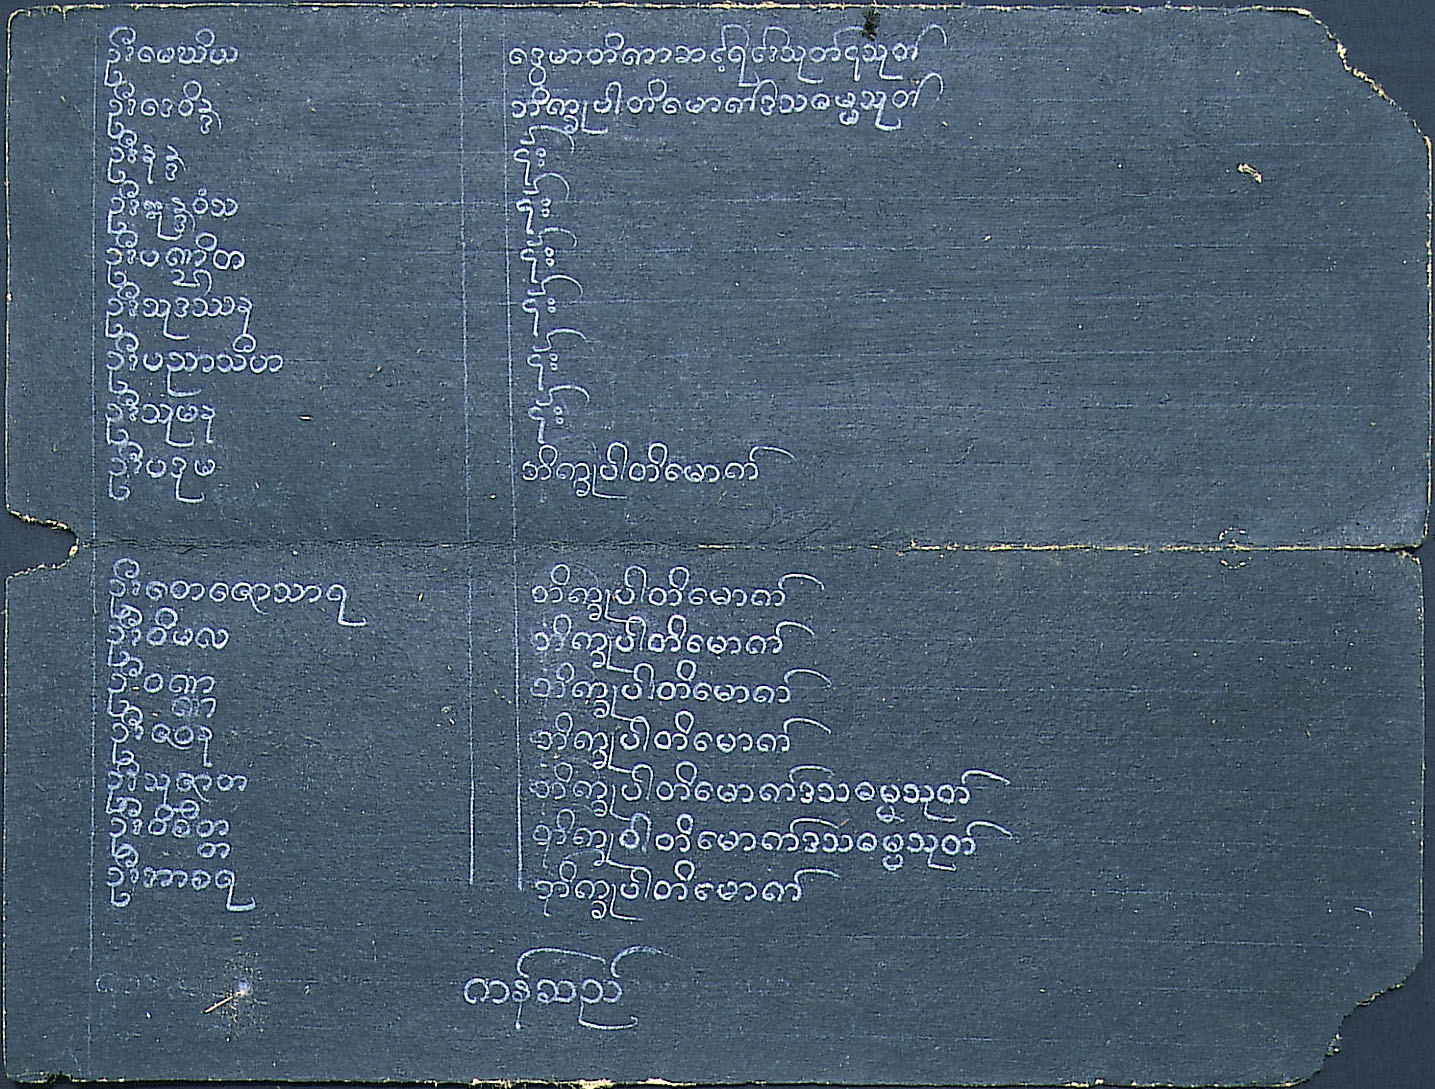 ဦးမေဃိယ ဒွေမာတိကာဆင့်ရင်းသုတ်၎သုတ်
ဦးဒေဝိန္ဒ ဘိက္ခုပါတိမောက်ဒသဓမ္မသုတ်
ဦးနန္ဒ ၎င်း
ဦးဣန္ဒဝံသ ၎င်း
ဦးပဏ္ဍိတ ၎င်း
ဦးသုဒဿန ၎င်း
ဦးပညာသီဟ ၎င်း
ဦးသုမန ၎င်း
ဦးပဒုမ ဘိက္ခုပါတိမောက်
ဦးတေဇောသာရ ဘိက္ခုပါတိမောက်
ဦးဝိမလ ဘိက္ခုပါတိမောက်
ဦးဝဏ္ဏ ဘိက္ခုပါတိမောက်
ဦးဇဝန ဘိက္ခုပါတိမောက်
ဦးသုဇာတ ဘိက္ခုပါတိမောက်ဒသဓမ္မသုတ်
ဦးဝိစိတ္တ ဘိက္ခုပါတိမောက်ဒသဓမ္မသုတ်
ဦးအာစရ ဘိက္ခုပါတိမောက်
ကန်ဆည်